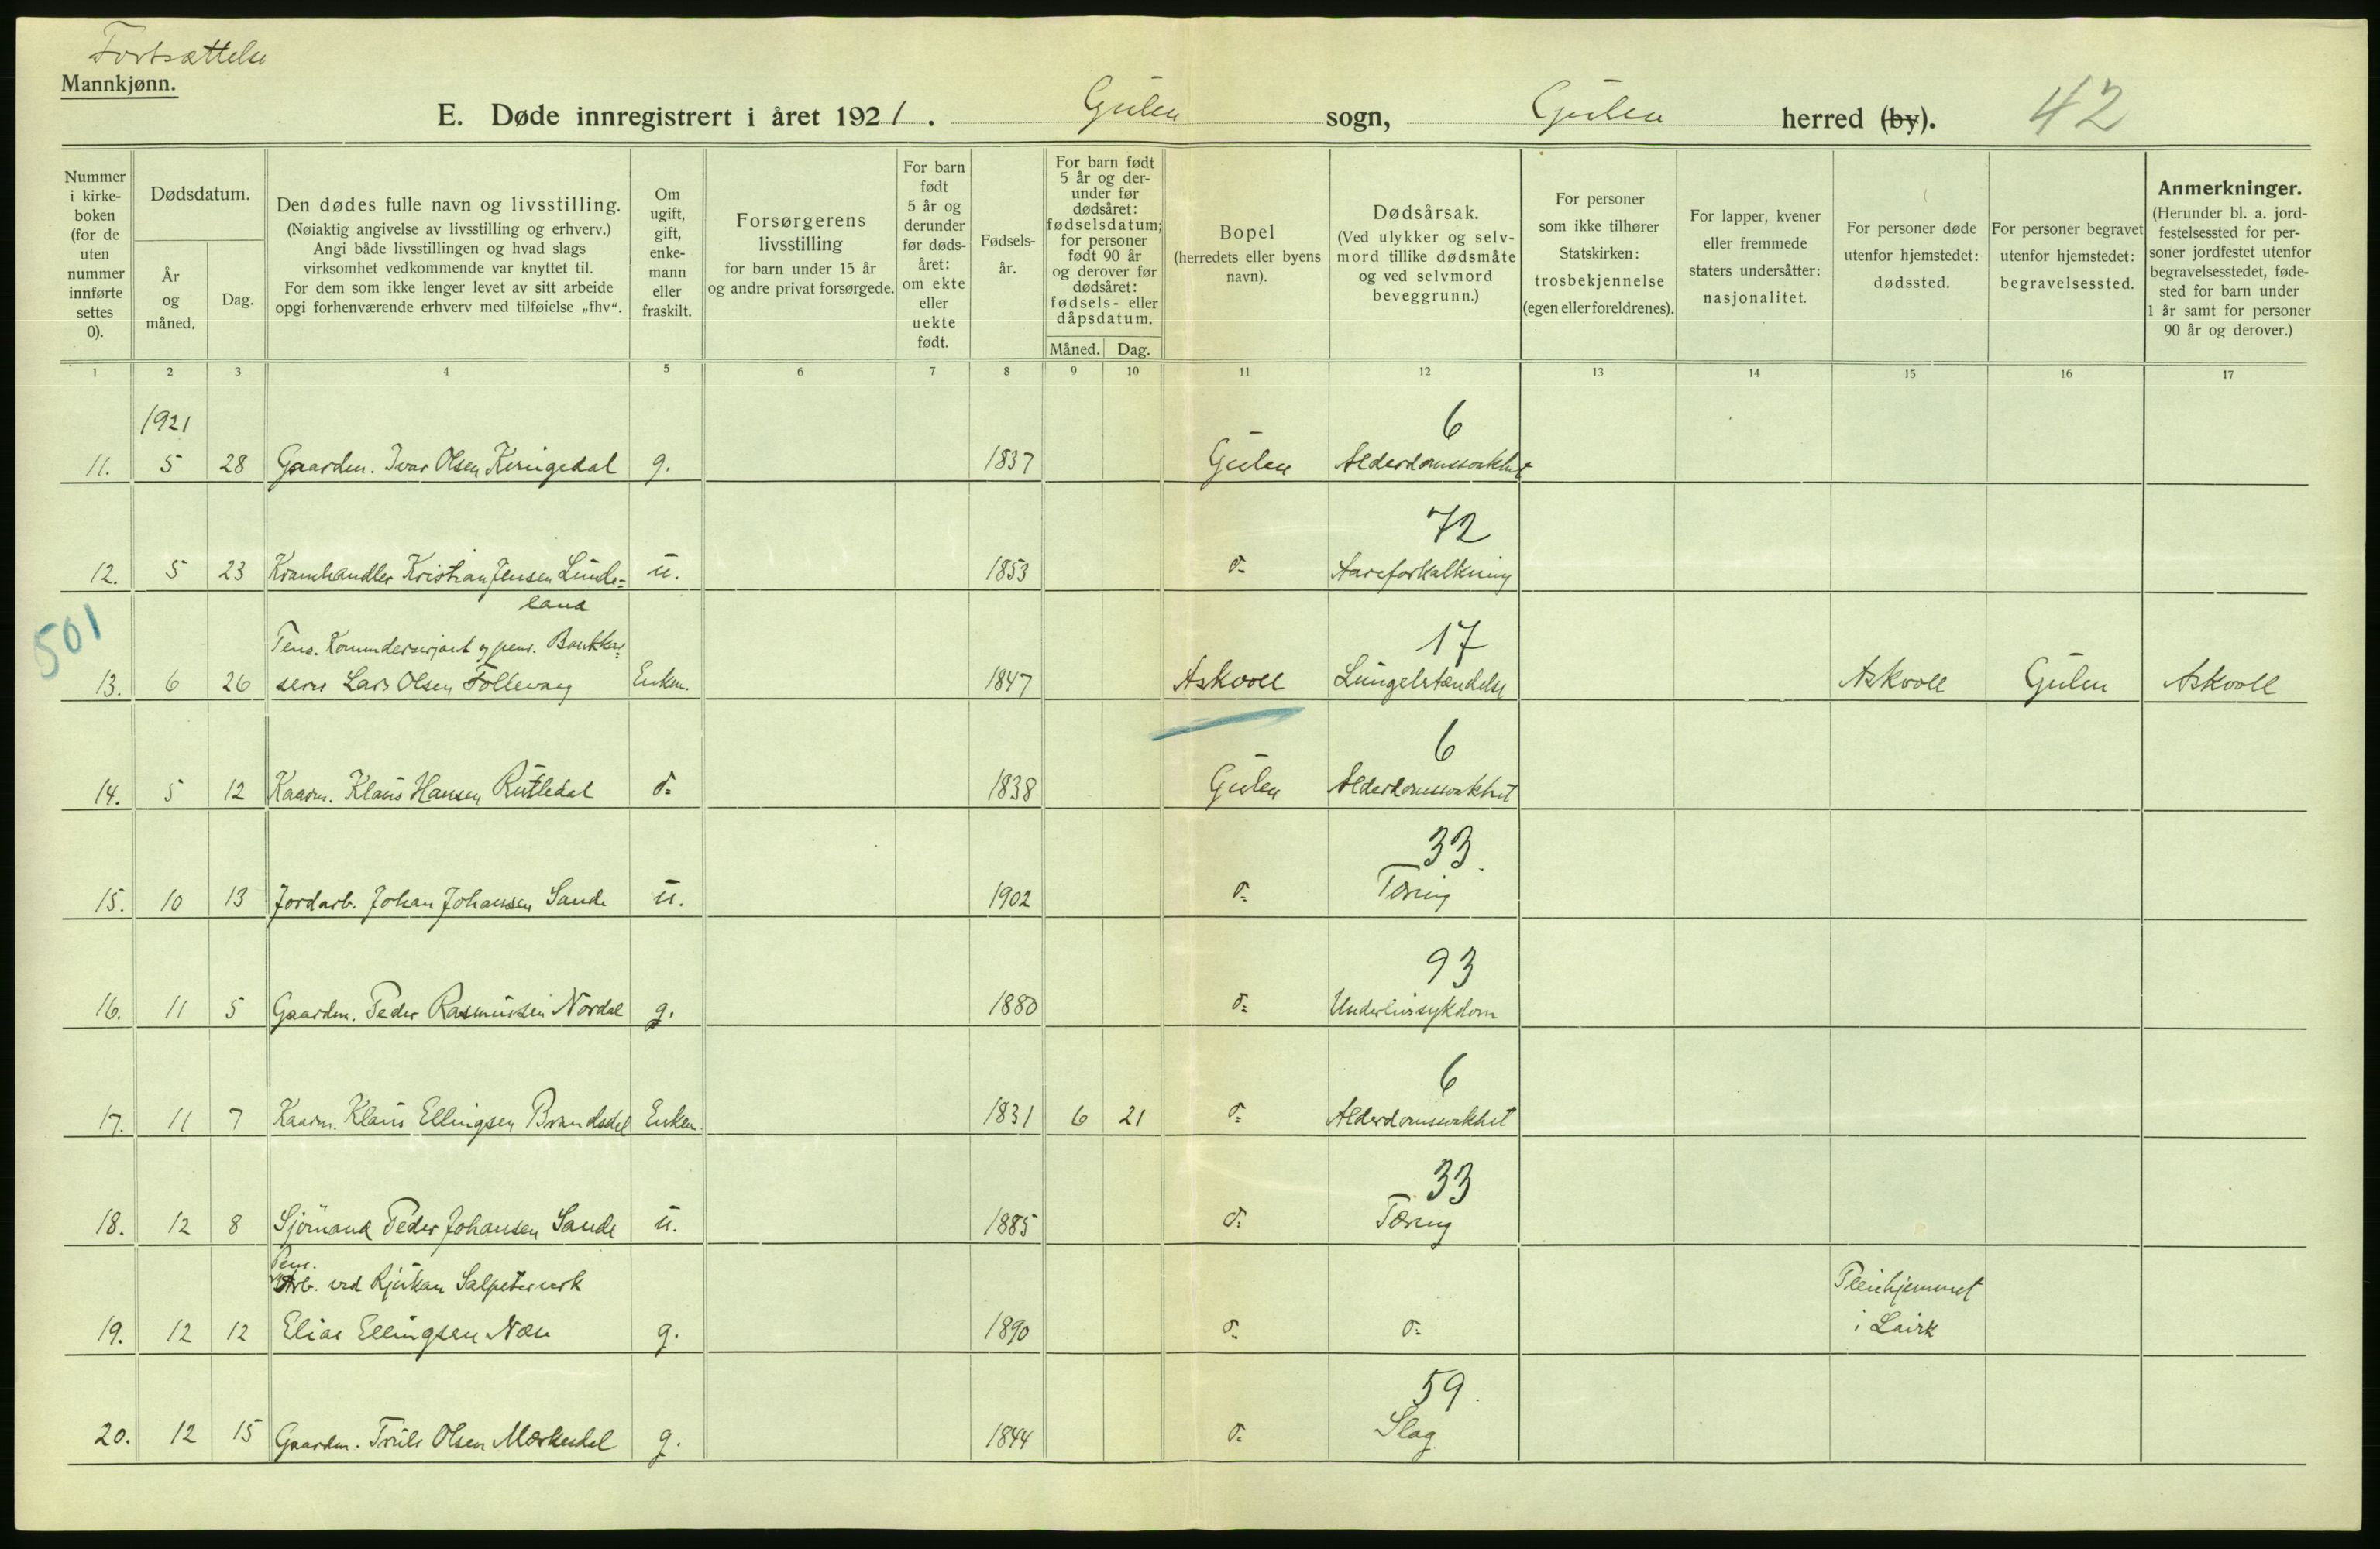 Fortsættelse
Mannkjønn.
E. Døde innregistrert i året 1921. Gulen sogn, Gulen herred (by). 42
Nummer i kirkeboken (for de uten nummer innførte settes 0).
Dødsdatum.
År og måned.
Dag.
Den dødes fulle navn og livsstilling.
(Nøiaktig angivelse av livsstilling og erhverv.)
Angi både livsstillingen og hvad slags
virksomhet vedkommende var knyttet til.
For dem som ikke lenger levet av sitt arbeide
opgi forhenværende erhverv med tilføielse „fhv“.
Om ugift, gift, enkemann eller fraskilt.
Forsørgerens livsstilling
for barn under 15 år
og andre privat forsørgede.
For barn født 5 år og derunder før dødsåret: om ekte eller uekte født.
Fødselsår.
For barn født 5 år og derunder før dødsåret: fødselsdatum; for personer født 90 år og derover før dødsåret: fødsels- eller dåpsdatum.
Måned. Dag.
Bopel
(herredets eller byens navn).
Dødsårsak.
(Ved ulykker og selvmord tillike dødsmåte og ved selvmord beveggrunn.)
For personer som ikke tilhører Statskirken: trosbekjennelse (egen eller foreldrenes).
For lapper, kvener eller fremmede staters undersåtter: nasjonalitet.
For personer døde utenfor hjemstedet: dødssted.
For personer begravet utenfor hjemstedet: begravelsessted.
Anmerkninger.
(Herunder bl. a. jordfestelsessted for personer jordfestet utenfor begravelsesstedet, fødested for barn under 1 år samt for personer 90 år og derover.)
1 2 3 4 5 6 7 8 9 10 11 12 13 14 15 16 17
1921 6
11. 5 28 Gaardm. Ivar Olsen Keringedal g. 1837 Gulen Alderdomssvakhet
72
12. 5 23 Kramhandler Kristian Jensen Lunde= u. 1853 d= Aareforkalkning
land
501
Pens. Kommdersersjant og pens. Bankkas= 17
serer Lars Olsen Follevaag
13. 6 26 Enkem. 1847 Askvoll Lungebetændelse Askvoll Gulen Askvoll
6
14. 5 12 Kaarm. Klaus Hansen Rutledal d= 1838 Gulen Alderdomssvakhet
33
15. 10 13 Jordarb. Johan Johansen Sande u. 1902 d= Tæring
93
16. 11 5 Gaardm. Peder Rasmussen Nordal g. 1880 d= Underlivssykdom
6
17. 11 7 Kaarm. Klaus Ellingsen Brandsdal Enkem. 1831 6 21 d= Alderdomssvakhet
33
18. 12 8 Sjømand Peder Johansen Sande u. 1885 d= Tæring
Pens.
Arb. ved Rjukan Salpeterverk Pleiehjemmet
19. 12 12 Elias Ellingsen Næse g. 1890 d= d= i Lavik
59.
20. 12 15 Gaardm. Truls Olsen Mærkesdal g. 1844 d= Slag